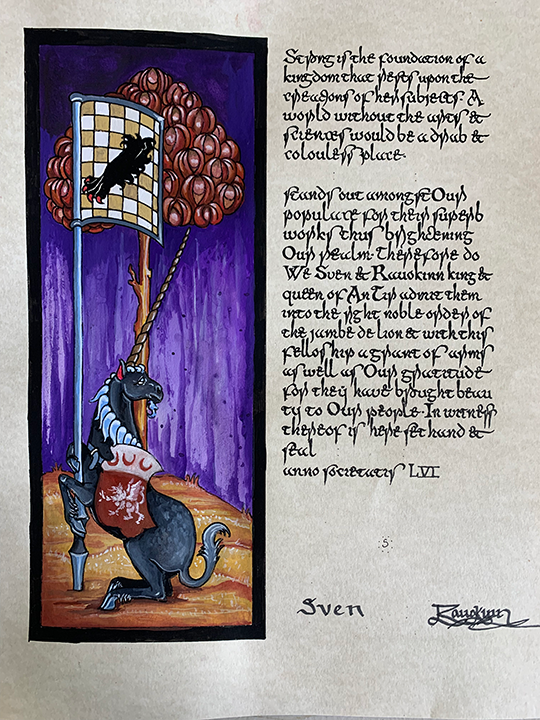 Strong is the foundation of a
kingdom that rests upon the
creations of her subjects. A
world without the arts &
sciences would be a drab &
colouless place.
stands out amongst Our
populace for their superb
works thus brightening
Our realm. Therefore do
We Sven & Rauokinn king &
queen of An Tir admit them
into the right noble order of
the jambe de lion & with this
felloship a grant of arms
as well as Our gratitude
for they have brought beau
ty to Our people. In witness
thereof is here set hand &
seal
anno societatis LVI
S
Sven Rauokinn